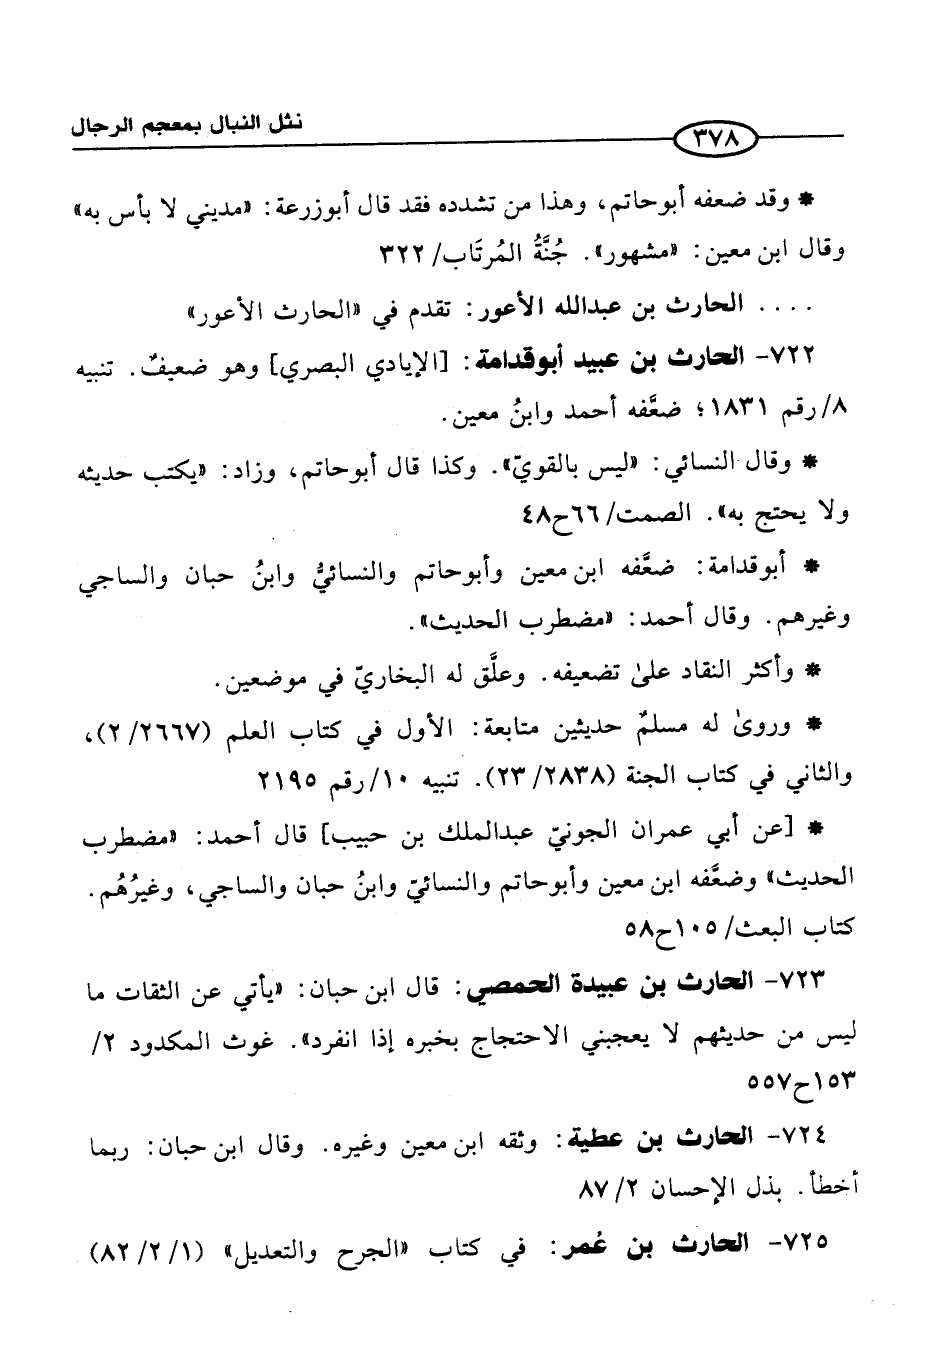 نثل النبال بمعجم الرجال
٣٧٨
* وقد ضعفه أبوحاتم، وهذا من تشدده فقد قال أبوزرعة: «مديني لا بأس به»
وقال ابن معين: «مشهور». جُنَّةُ المُرتَاب/ ٣٢٢
.... الحارث بن عبدالله الأعور: تقدم في «الحارث الأعور»
٧٢٢- الحارث بن عبيد أبوقدامة: [الإيادي البصري] وهو ضعيفٌ. تنبيه
٨/ رقم ١٨٣١؛ ضعَّفه أحمد وابنُ معين.
* وقال النسائي: «ليس بالقويّ». وكذا قال أبوحاتم، وزاد: «يكتب حديثه
ولا يحتج به». الصمت/ ٦٦ح٤٨
* أبوقدامة: ضعَّفه ابن معين وأبوحاتم والنسائيُّ وابنُ حبان والساجي
وغيرهم. وقال أحمد: «مضطرب الحديث».
* وأكثر النقاد علىٰ تضعيفه. وعلَّق له البخاريّ في موضعين.
* وروىٰ له مسلمٌ حديثين متابعة: الأول في كتاب العلم (٢/٢٦٦٧)،
والثاني في كتاب الجنة (٢٣/٢٨٣٨). تنبيه ١٠/ رقم ٢١٩٥
* [عن أبي عمران الجونيّ عبدالملك بن حبيب] قال أحمد: «مضطرب
الحديث» وضعَّفه ابن معين وأبوحاتم والنسائيّ وابنُ حبان والساجي، وغيرُهُم.
كتاب البعث/ ١٠٥ح٥٨
٧٢٣- الحارث بن عبيدة الحمصي: قال ابن حبان: «يأتي عن الثقات ما
ليس من حديثهم لا يعجبني الاحتجاج بخبره إذا انفرد». غوث المكدود ٢/
١٥٣ح٥٥٧
٧٢٤- الحارث بن عطية: وثقه ابن معين وغيره. وقال ابن حبان: ربما
أخطأ. بذل الإحسان ٢/ ٨٧
٧٢٥- الحارث بن عُمر: في كتاب «الجرح والتعديل» (١/ ٢/ ٨٢)